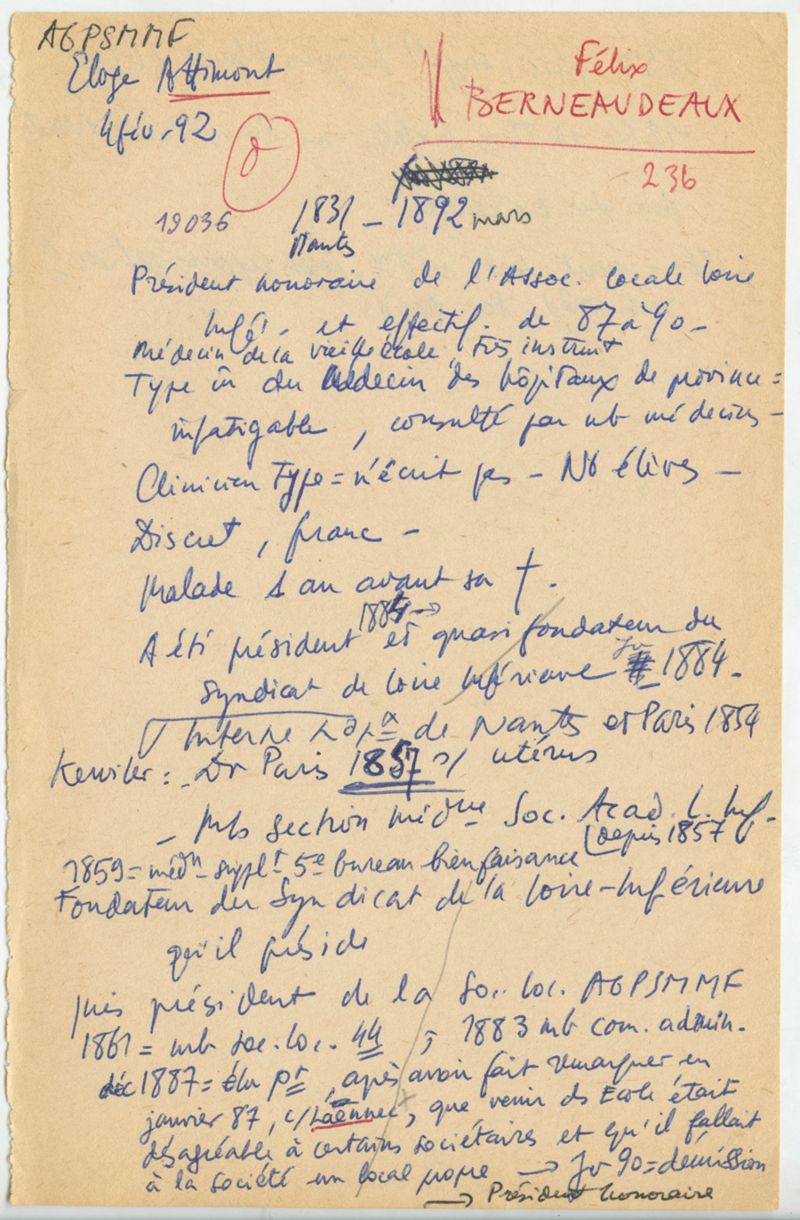 AGPSMMF
Eloge Attimont
4 fév. 92
Félix
BERNEAUDEAUX
236
19036
1831 – 1892 mars
Nantes
Président honoraire de l'Assoc. locale Loire
Infre. et effectif. de 87 à 90 –
Médecin de la vieille école Très instruit
Type du Médecin des hôpitaux de province =
infatigable, consulté par nb médecins –
Clinicien Type = n'écrit pas – Nb élèves –
Discret, franc –
Malade 1 an avant sa †.
1884 →
A été président et quasi fondateur du
Syndicat de Loire Inférieure Jv 1884 –
Interne hôpx de Nantes et Paris 1854
Kerviler = – Dr Paris 1857 s/ utérus
– Mb section médne Soc. Acad. L. Inf.
depuis 1857
1859 = médn supplt 5e bureau bienfaisance
Fondateur du Syndicat de la Loire-Inférieure
qu'il préside
puis président de la Soc. loc. AGPSMMF
1861 = mb soc. loc. 44 ; 1883 mb com. admin.
déc 1887 = élu pt, après avoir fait remarquer en
janvier 87, c/ Laënnec, que venir ds Ecole était
désagréable à certains sociétaires et qu'il fallait
à la société un local propre → Jv 90 = démission
→ Président honoraire